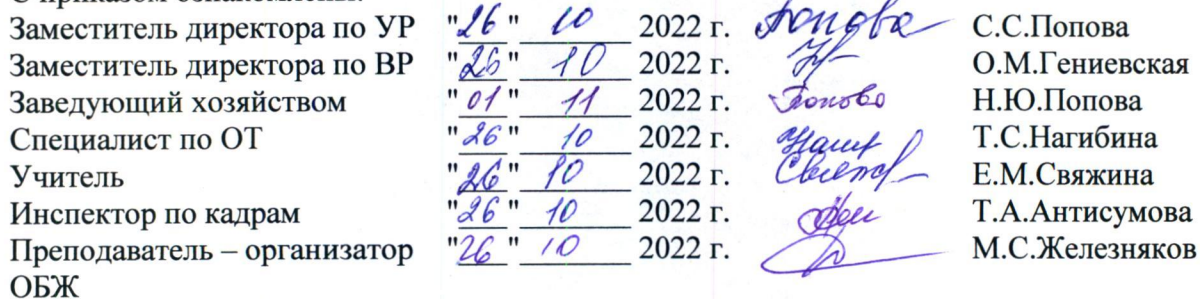 С приказом ознакомлены:
Заместитель директора по УР "26" 10 2022 г. Попова С.С.Попова
Заместитель директора по ВР "26" 10 2022 г. О.М.Гениевская
Заведующий хозяйством "01" 11 2022 г. Попова Н.Ю.Попова
Специалист по ОТ "26" 10 2022 г. Т.С.Нагибина
Учитель "26" 10 2022 г. Е.М.Свяжина
Инспектор по кадрам "26" 10 2022 г. Т.А.Антисумова
Преподаватель – организатор "26" 10 2022 г. М.С.Железняков
ОБЖ